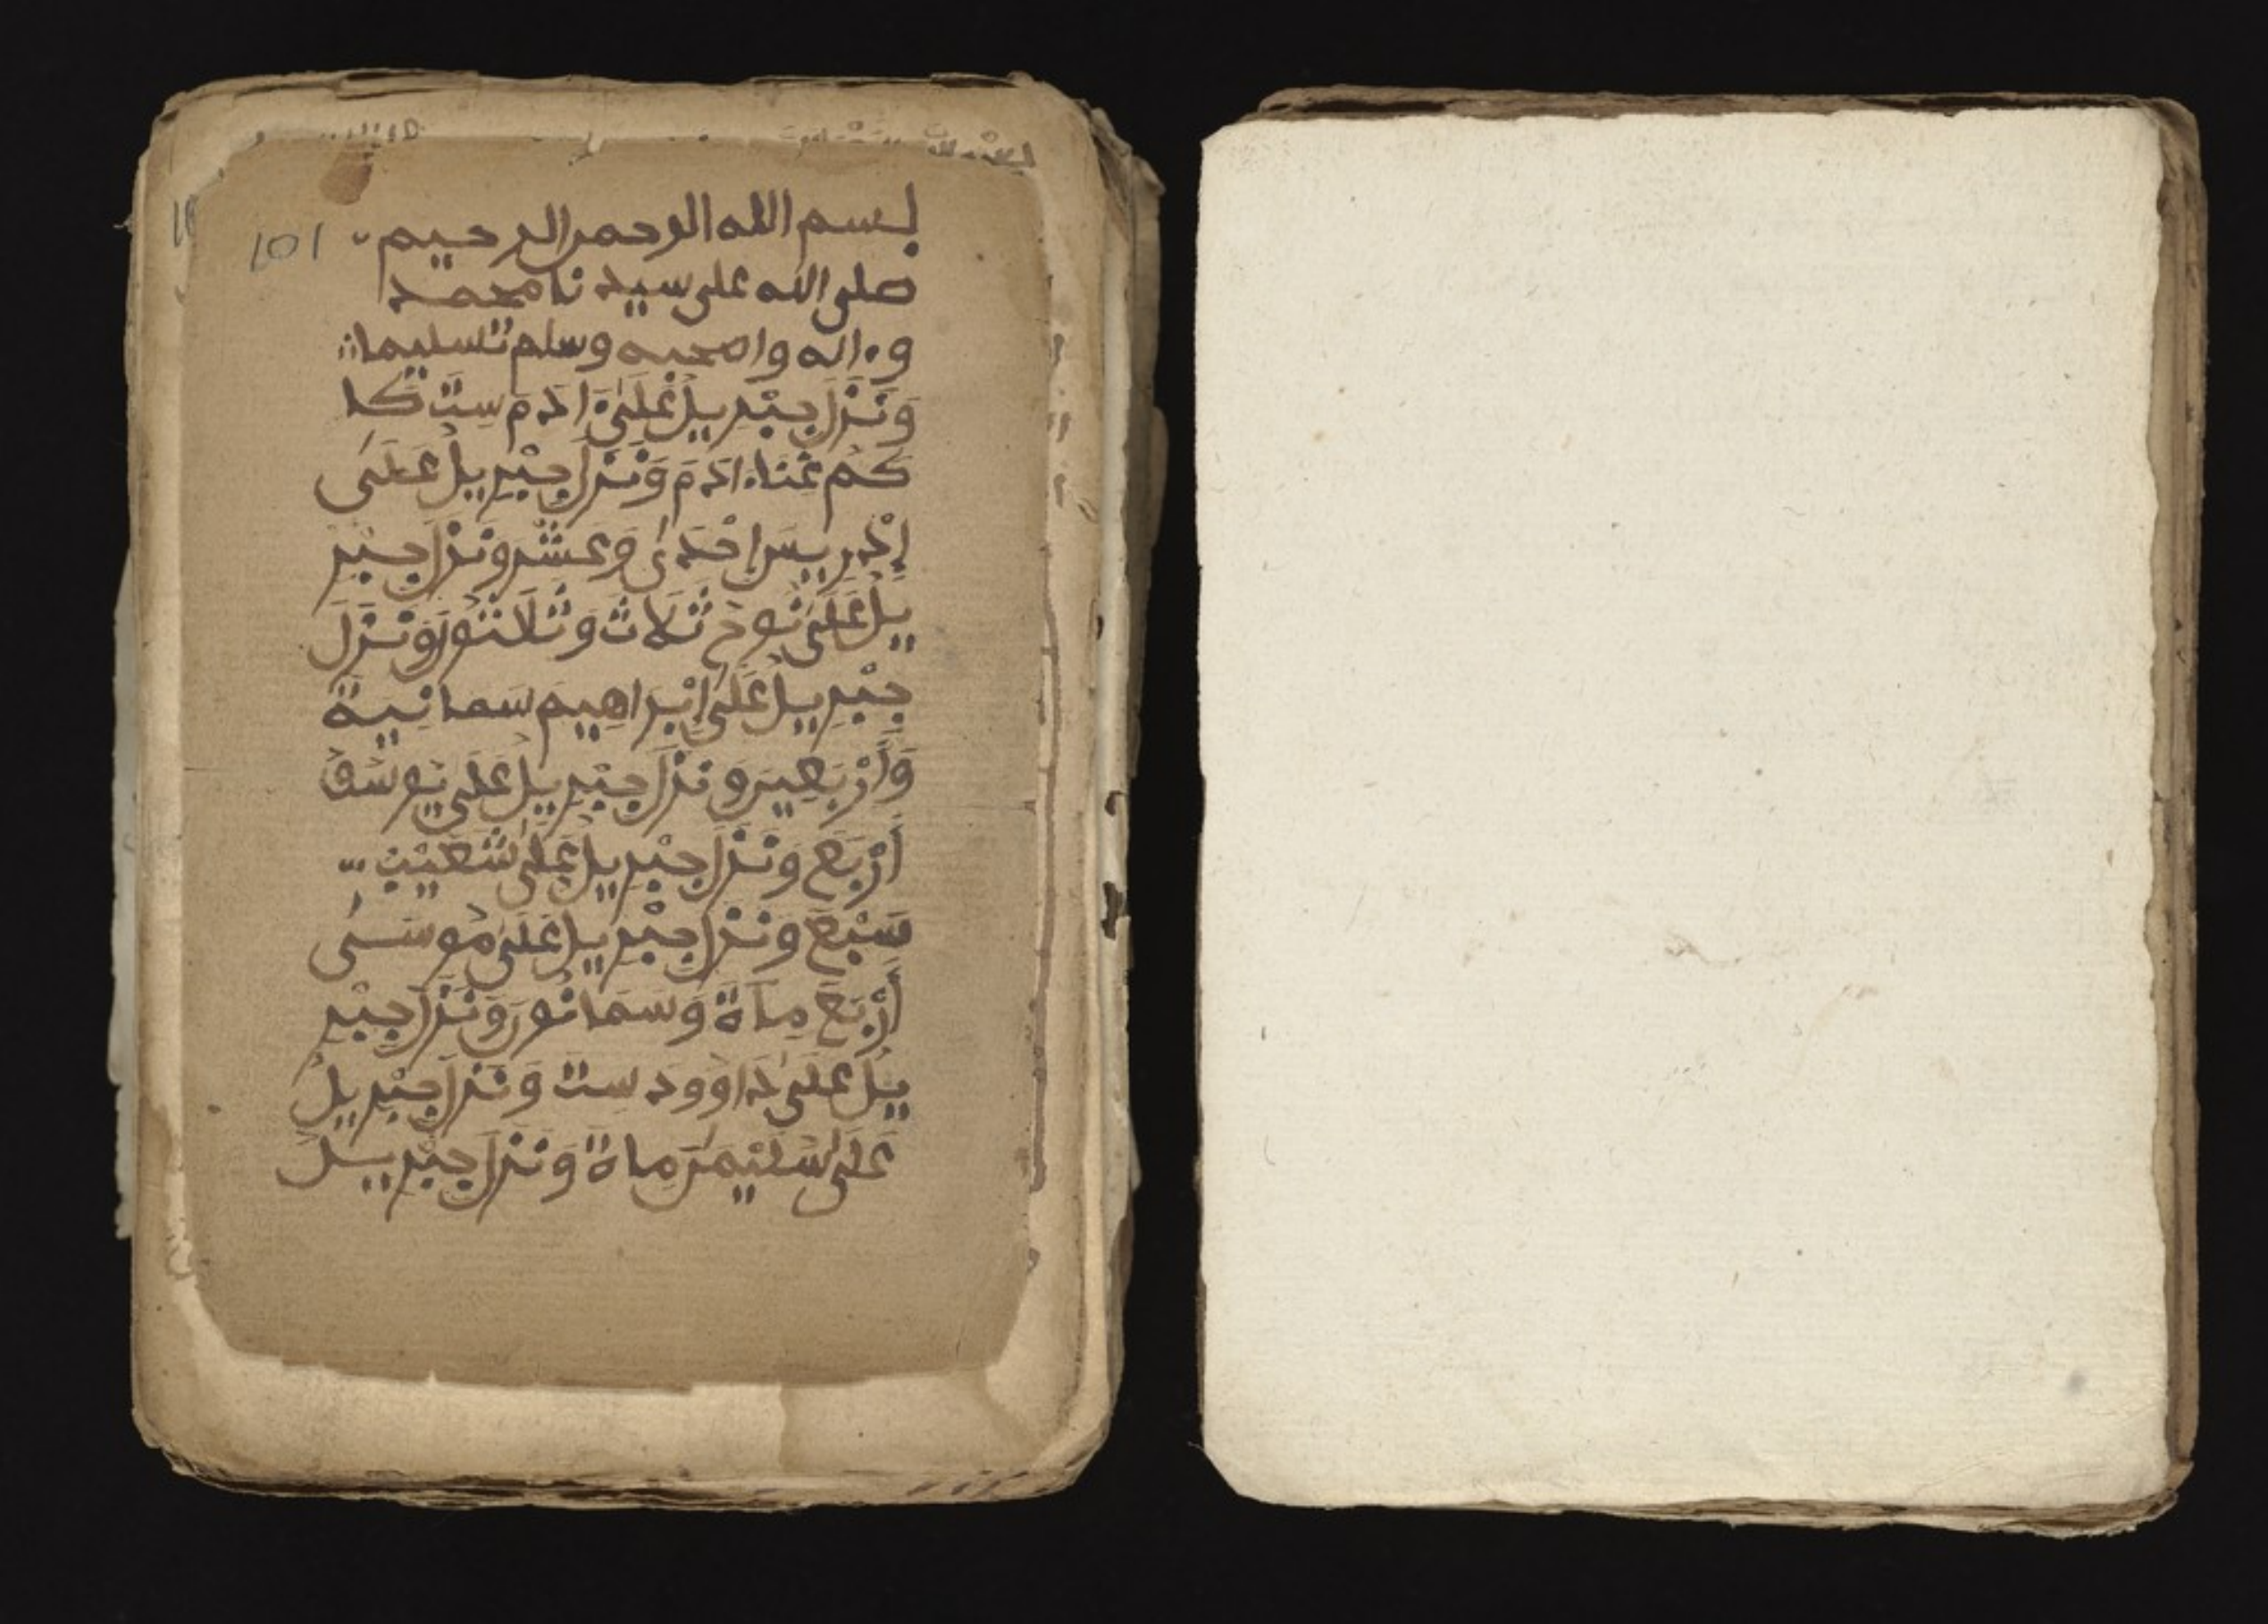 101
بسم الله الرحمن الرحيم
صلى الله على سيدنا محمد
وءاله واصحبه وسلم تسليما
وَنَزَلَ جِبْرِيلُ عَلَىٰ ءَادَمَ سِتَّ كا
كَمُ عَنَاءَادَمَ وَنَزَلَ جِبْرِيلُ عَلَىٰ
إِدْرِيسَ إِحْدَىٰ وَعَشْرَ وَنَزَلَ جِبْرِ
يلُ عَلَىٰ نُوحٍ ثَلَاثَ وَثَلَاثُونَ وَنَزَلَ
جِبْرِيلُ عَلَىٰ إِبْرَاهِيمَ سَمانِيَةَ
وَأَرْبَعِينَ وَنَزَلَ جِبْرِيلُ عَلَىٰ يُوسُفَ
أَرْبَعَ وَنَزَلَ جِبْرِيلُ عَلَىٰ شُعَيْبَ
سَبْعَ وَنَزَلَ جِبْرِيلُ عَلَىٰ مُوسَىٰ
أَرْبَعَ مِاةَ وَسَمَانُونَ وَنَزَلَ جِبْرِ
يلُ عَلَىٰ دَاوُودَ سِتَّ وَنَزَلَ جِبْرِيلُ
عَلَىٰ سُلَيْمَنَ مِاةَ وَنَزَلَ جِبْرِيلُ